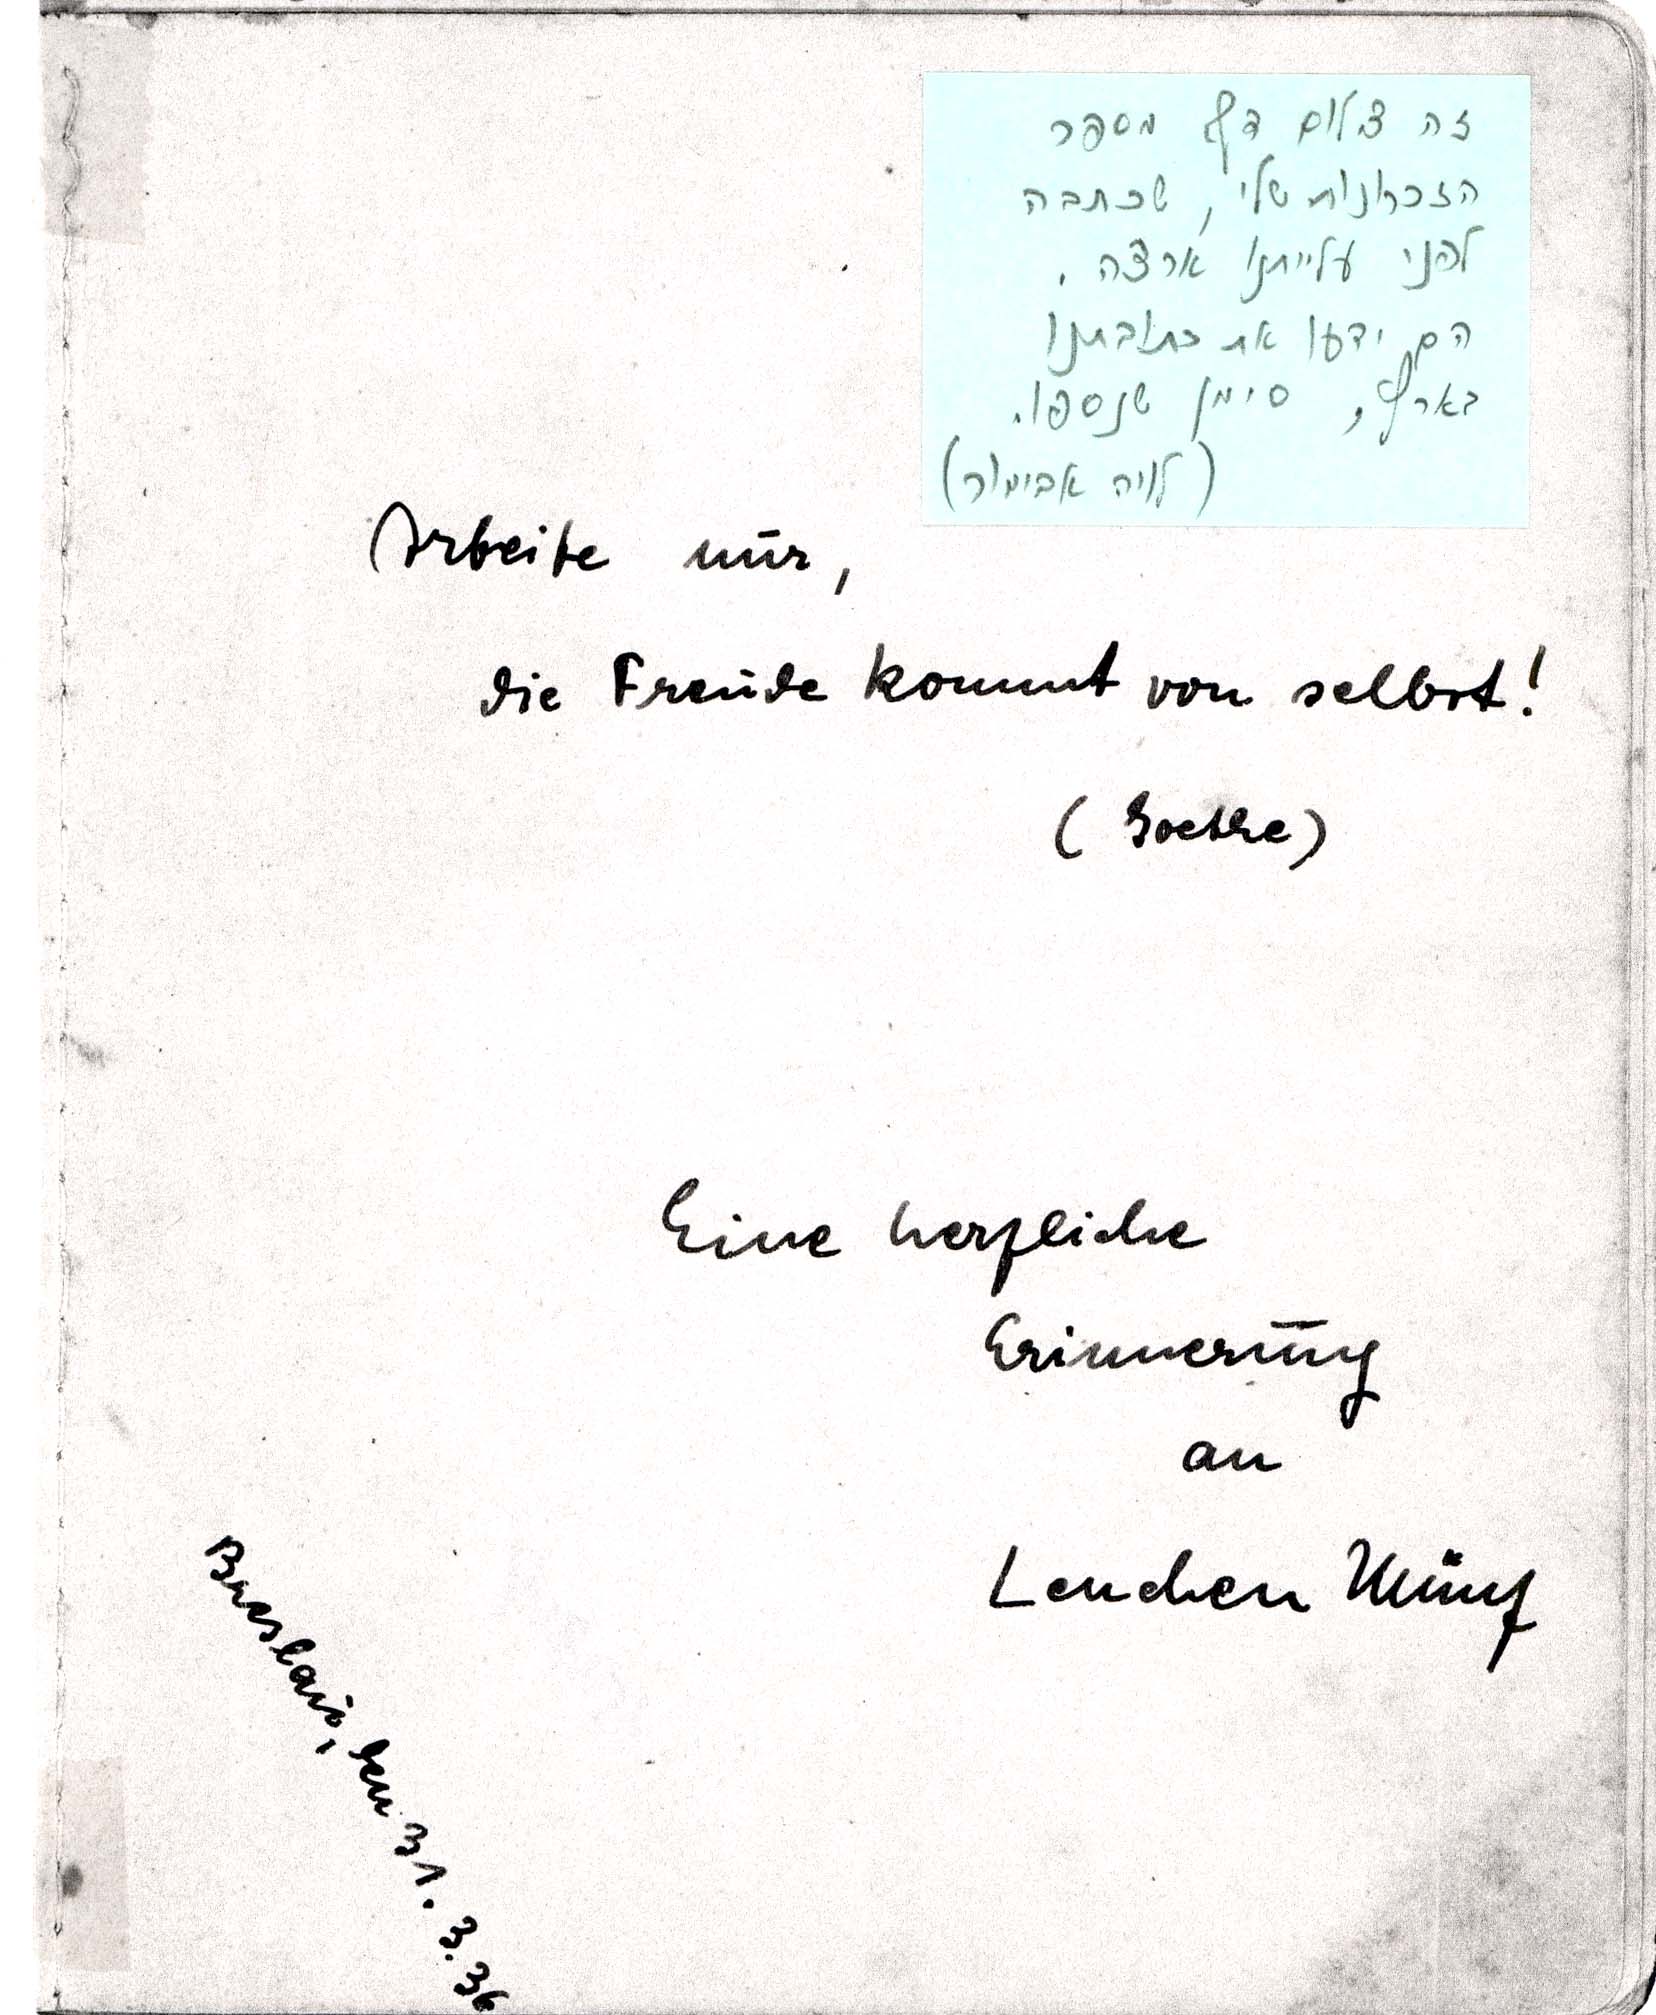 זה צילום דף מספר
הזכרונות שלי, שכתבה
לפני עלייתנו ארצה.
הם ידעו את כתובתנו
בארץ, סימן שנספו.
(לויה אבימור)
Arbeite nur,
die Freude kommt von selbst!
(Goethe)
Eine herzliche
Erinnerung
an
Lenchen Münz
Breslau, den 31.3.36